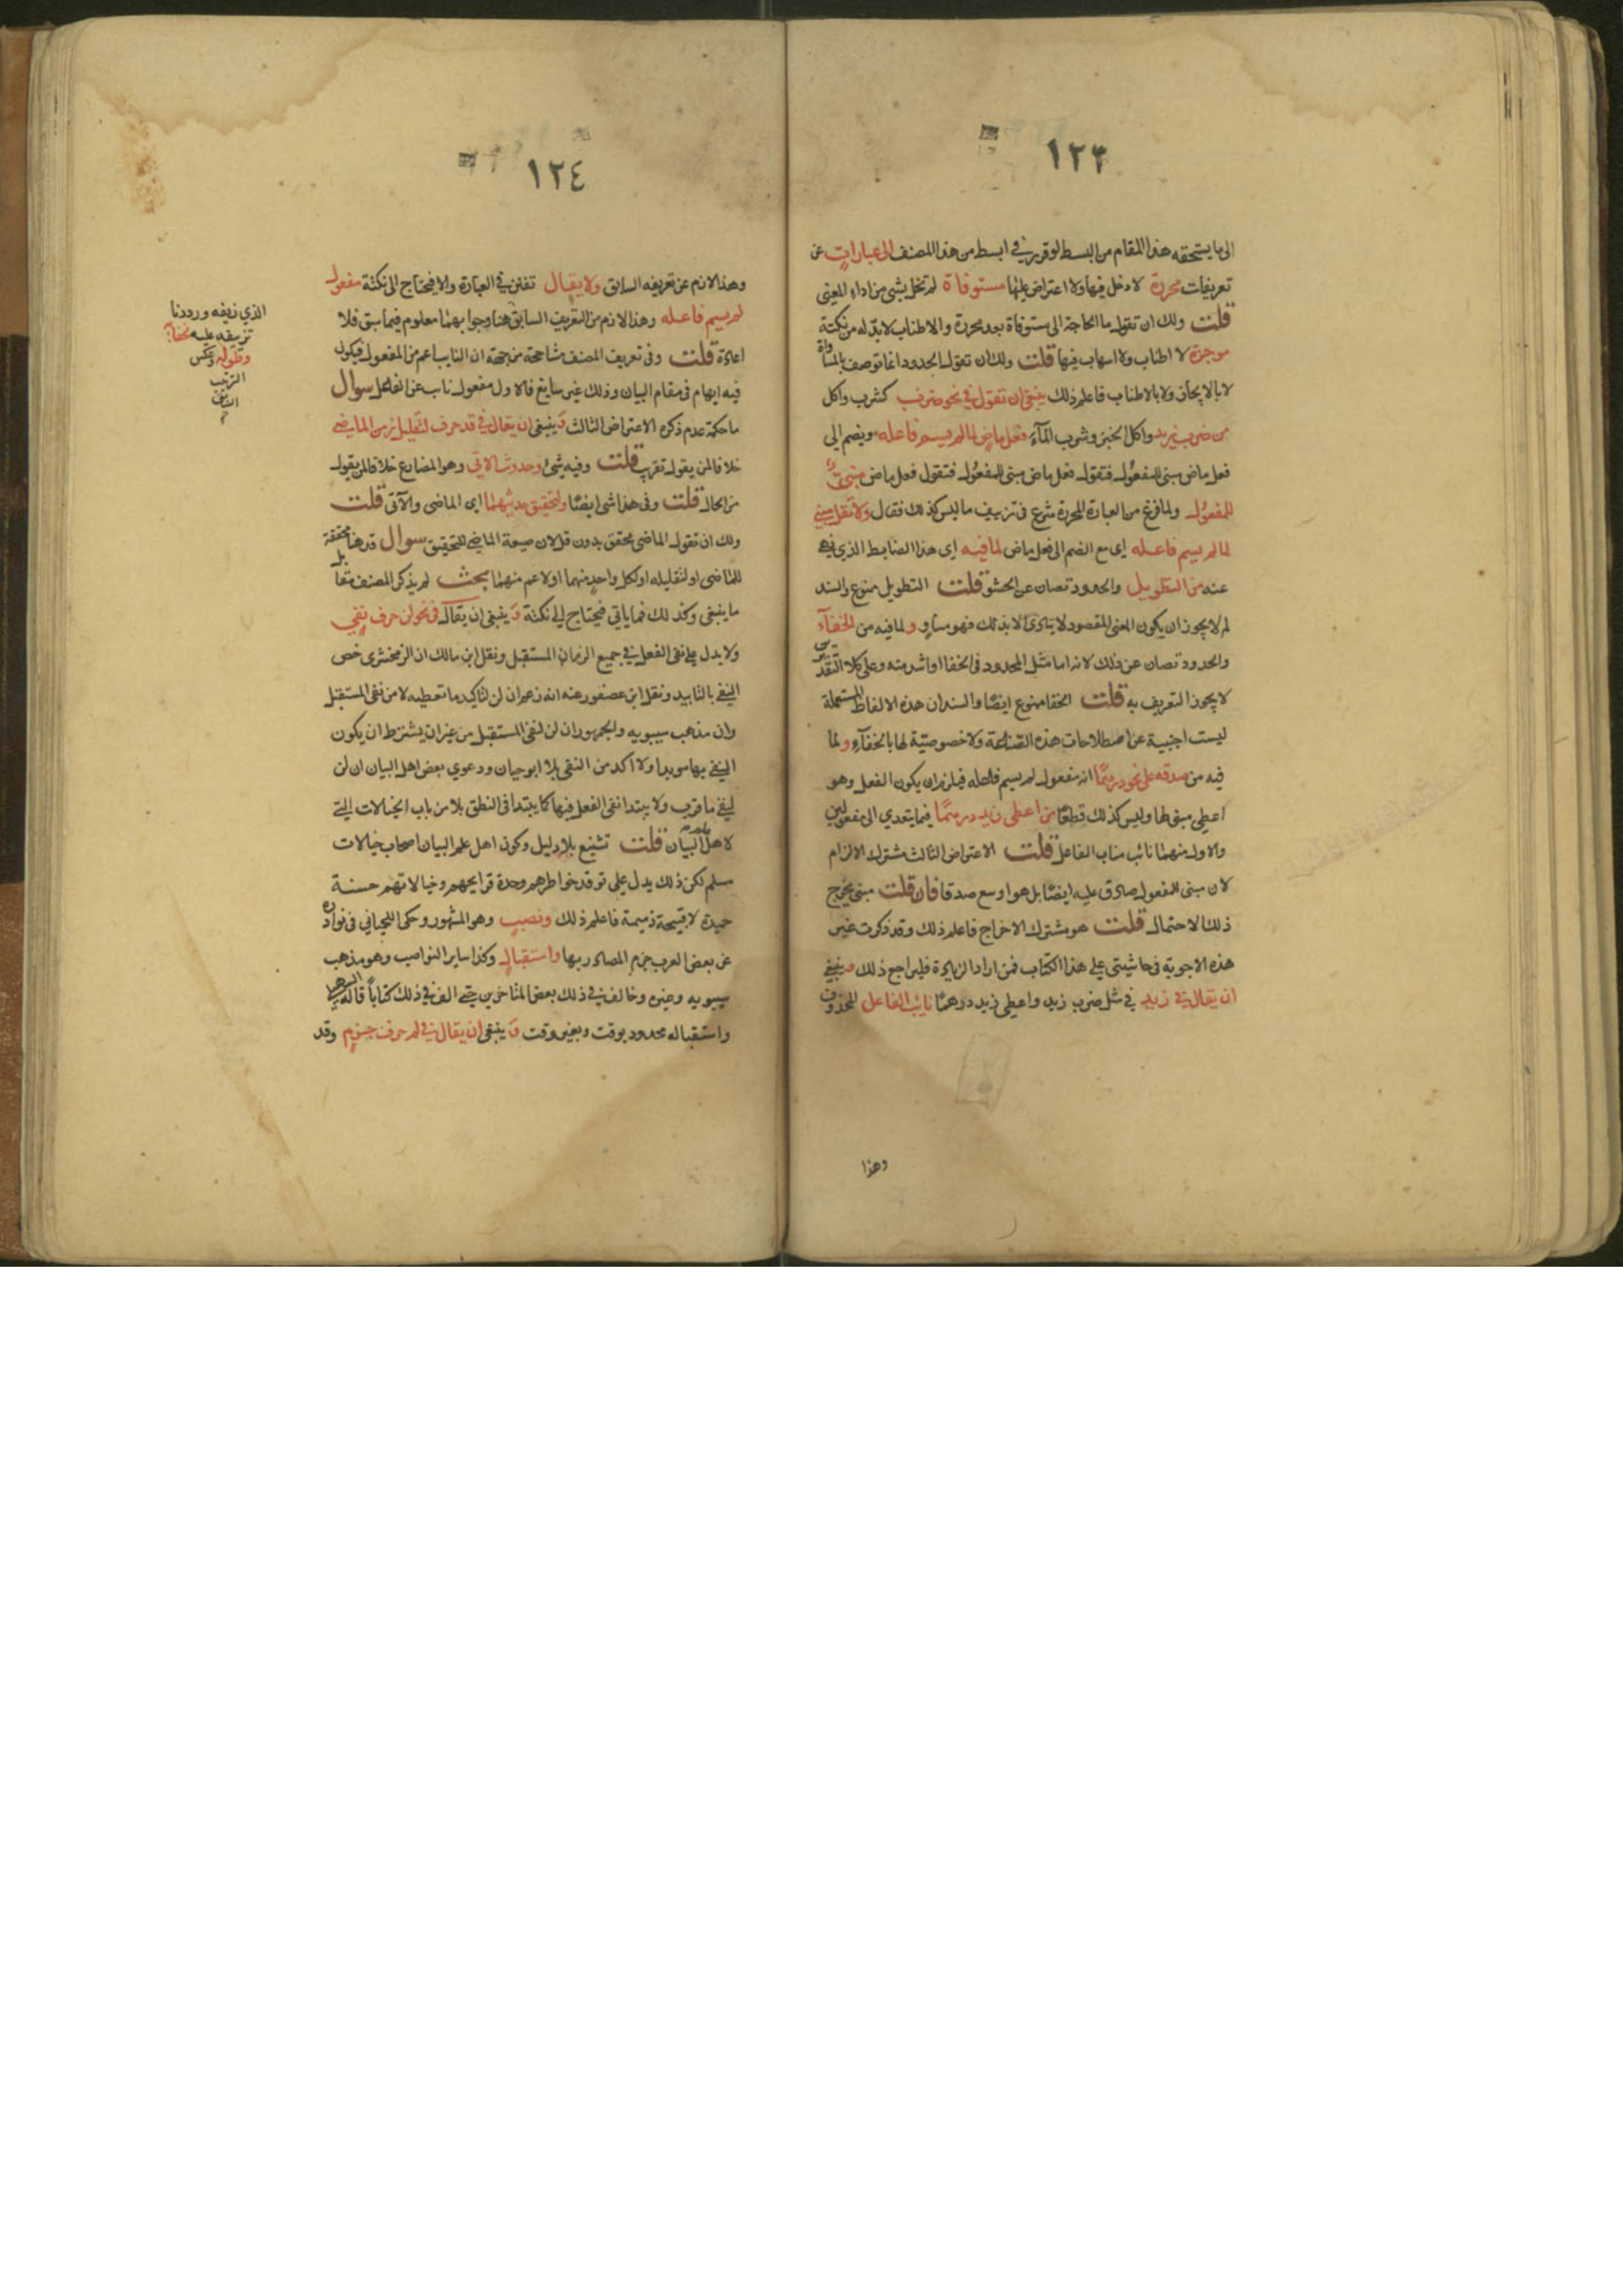 ١٢٣
الى ما يستحقه هذا المقام من البسط لوقرر في ابسط من هذا المصنف الى عبارات عن
تعريفات محررة لا دخل فيها ولا اعتراض عليها مستوفاة لم تخل بشي من اداء المعنى
قلت ولك ان تقول ما الحاجة الى مستوفاة بعد محررة والاطناب لا بد له من نكتة
موجزة لا اطناب ولا اسهاب فيها قلت ولك ان تقول الحدود انما توصف بالمساواة
لا بالايجاز ولا بالاطناب فاعلم ذلك ينبغي ان تقول في نحو ضرب كشرب واكل
من ضرب زيد واكل الخبز وشرب المآء فعل ماض لما لم يسم فاعله ويضم الى
فعل ماض مبنى للمفعول فتقول فعل ماض مبنى للمفعول فتقول فعل ماض مبنى
للمفعول ولما فرغ من العبارة المحررة شرع في تزييف ما ليس كذلك فقال ولا تقل مبني
لما لم يسم فاعله اى مع الضم الى فعل ماض لما فيه اى هذا الضابط الذي نهى
عنه من التطويل والحدود تصان عن الحشو قلت التطويل ممنوع والسند
لم لا يجوز ان يكون المعنى المقصود لا يتادى الا بذلك فهو مساو ولما فيه من الخفآء
والحدود تصان عن ذلك لانه اما مثل المحدود في الخفا او اشد منه وعلى كلا التقديرين
لا يجوز التعريف به قلت الخفا ممنوع ايضا والسند ان هذه الالفاظ المستعملة
ليست اجنبية عن اصطلاحات هذه الصناعة ولا خصوصية لها بالخفآء ولما
فيه من صدقه على نحو درهما انه مفعول لم يسم فاعله فيلزم ان يكون الفعل وهو
اعطى مبنى لها وليس كذلك قطعا من اعطى زيد درهما فيما يتعدي الى مفعولين
والاول منهما نائب مناب الفاعل قلت الاعتراض الثالث مشترك الالزام
لان مبنى للمفعول صادق عليه ايضا بل هو اوسع صدقا فان قلت مبنى يخرج
ذلك الاحتمال قلت هو مشترك الاخراج فاعلم ذلك وقد ذكرت غير
هذه الاجوبة في حاشيتي على هذا الكتاب فمن اراد الزيادة فليراجع ذلك وينبغي
ان يقال في زيد في مثل ضرب زيد واعطى زيد درهما نائب الفاعل المحذوف
وهذا
١٢٤
وهذا لازم عن تعريفه السابق ولا يقال تفنن في العبارة والا فيحتاج الى نكتة مفعول
لم يسم فاعله وهذا لازم من التعريف السابق هنا وجوابهما معلوم فيما سبق فلا
اعادة قلت وفي تعريف المصنف مشاححة من جهة ان النايب اعم من المفعول فيكون
فيه ايهام في مقام البيان وذلك غير سايغ فالاول مفعول ناب عن الفاعل سوال
ما حكمة عدم ذكره الاعتراض الثالث وينبغي ان يقال في قد حرف لتقليل زمن الماضي
خلافا لمن يقول تقرب قلت وفيه شئ وحدوث الاتي وهو المضارع خلافا لمن يقول
من الحال قلت وفي هذا شي ايضا ولتحقيق حدثيهما اى الماضى والآتى قلت
ولك ان تقول الماضى محقق بدون قد لان صيغة الماضي للتحقيق سوال قد هنا محققة
للماضى او لتقليله او لكل واحد منهما او لاعم منهما بحث لم يذكر المصنف مقابل
ما ينبغي وكذلك فيما ياتي فيحتاج الى نكتة وينبغي ان يقال في نحو لن حرف نفي
ولا يدل على نفى الفعل في جميع الزمان المستقبل ونقل ابن مالك ان الزمخشرى خص
النفي بالتابيد ونقل ابن عصفور عنه انه زعم ان لن لتاكيد ما تعطيه لا من نفى المستقبل
وان مذهب سيبويه والجمهور ان لن لنفى المستقبل من غير ان يشترط ان يكون
النفي بها موبدا ولا اكد من النفى بلا ابو حيان ودعوي بعض اهل البيان ان لن
لنفي ما قرب ولا يبتدا نفى الفعل فيها كما يبتدا في النطق بلا من باب الخيالات التي
لاهل البيان قلت تشنيع بلا دليل وكون اهل علم البيان اصحاب خيالات
مسلم لكن ذلك يدل على توقد خواطرهم وحدة قرايحهم وخيالاتهم حسنة
حميدة لا قبيحة ذميمة فاعلم ذلك ونصب وهو المشهور وحكى اللحياني في نوادره
عن بعض العرب جزم المضارع بها واستقبال وكذا ساير النواصب وهو مذهب
سيبويه وغيره وخالف في ذلك بعض المتاخرين حتى الف في ذلك كتاباً قاله
واستقباله محدود بوقت وبغير وقت وينبغي ان يقال في لم حرف جزم وقد
الذي زيفه ورددنا
تزييفه عليه خفآ
وطوله وعكس
الترتيب
السابق